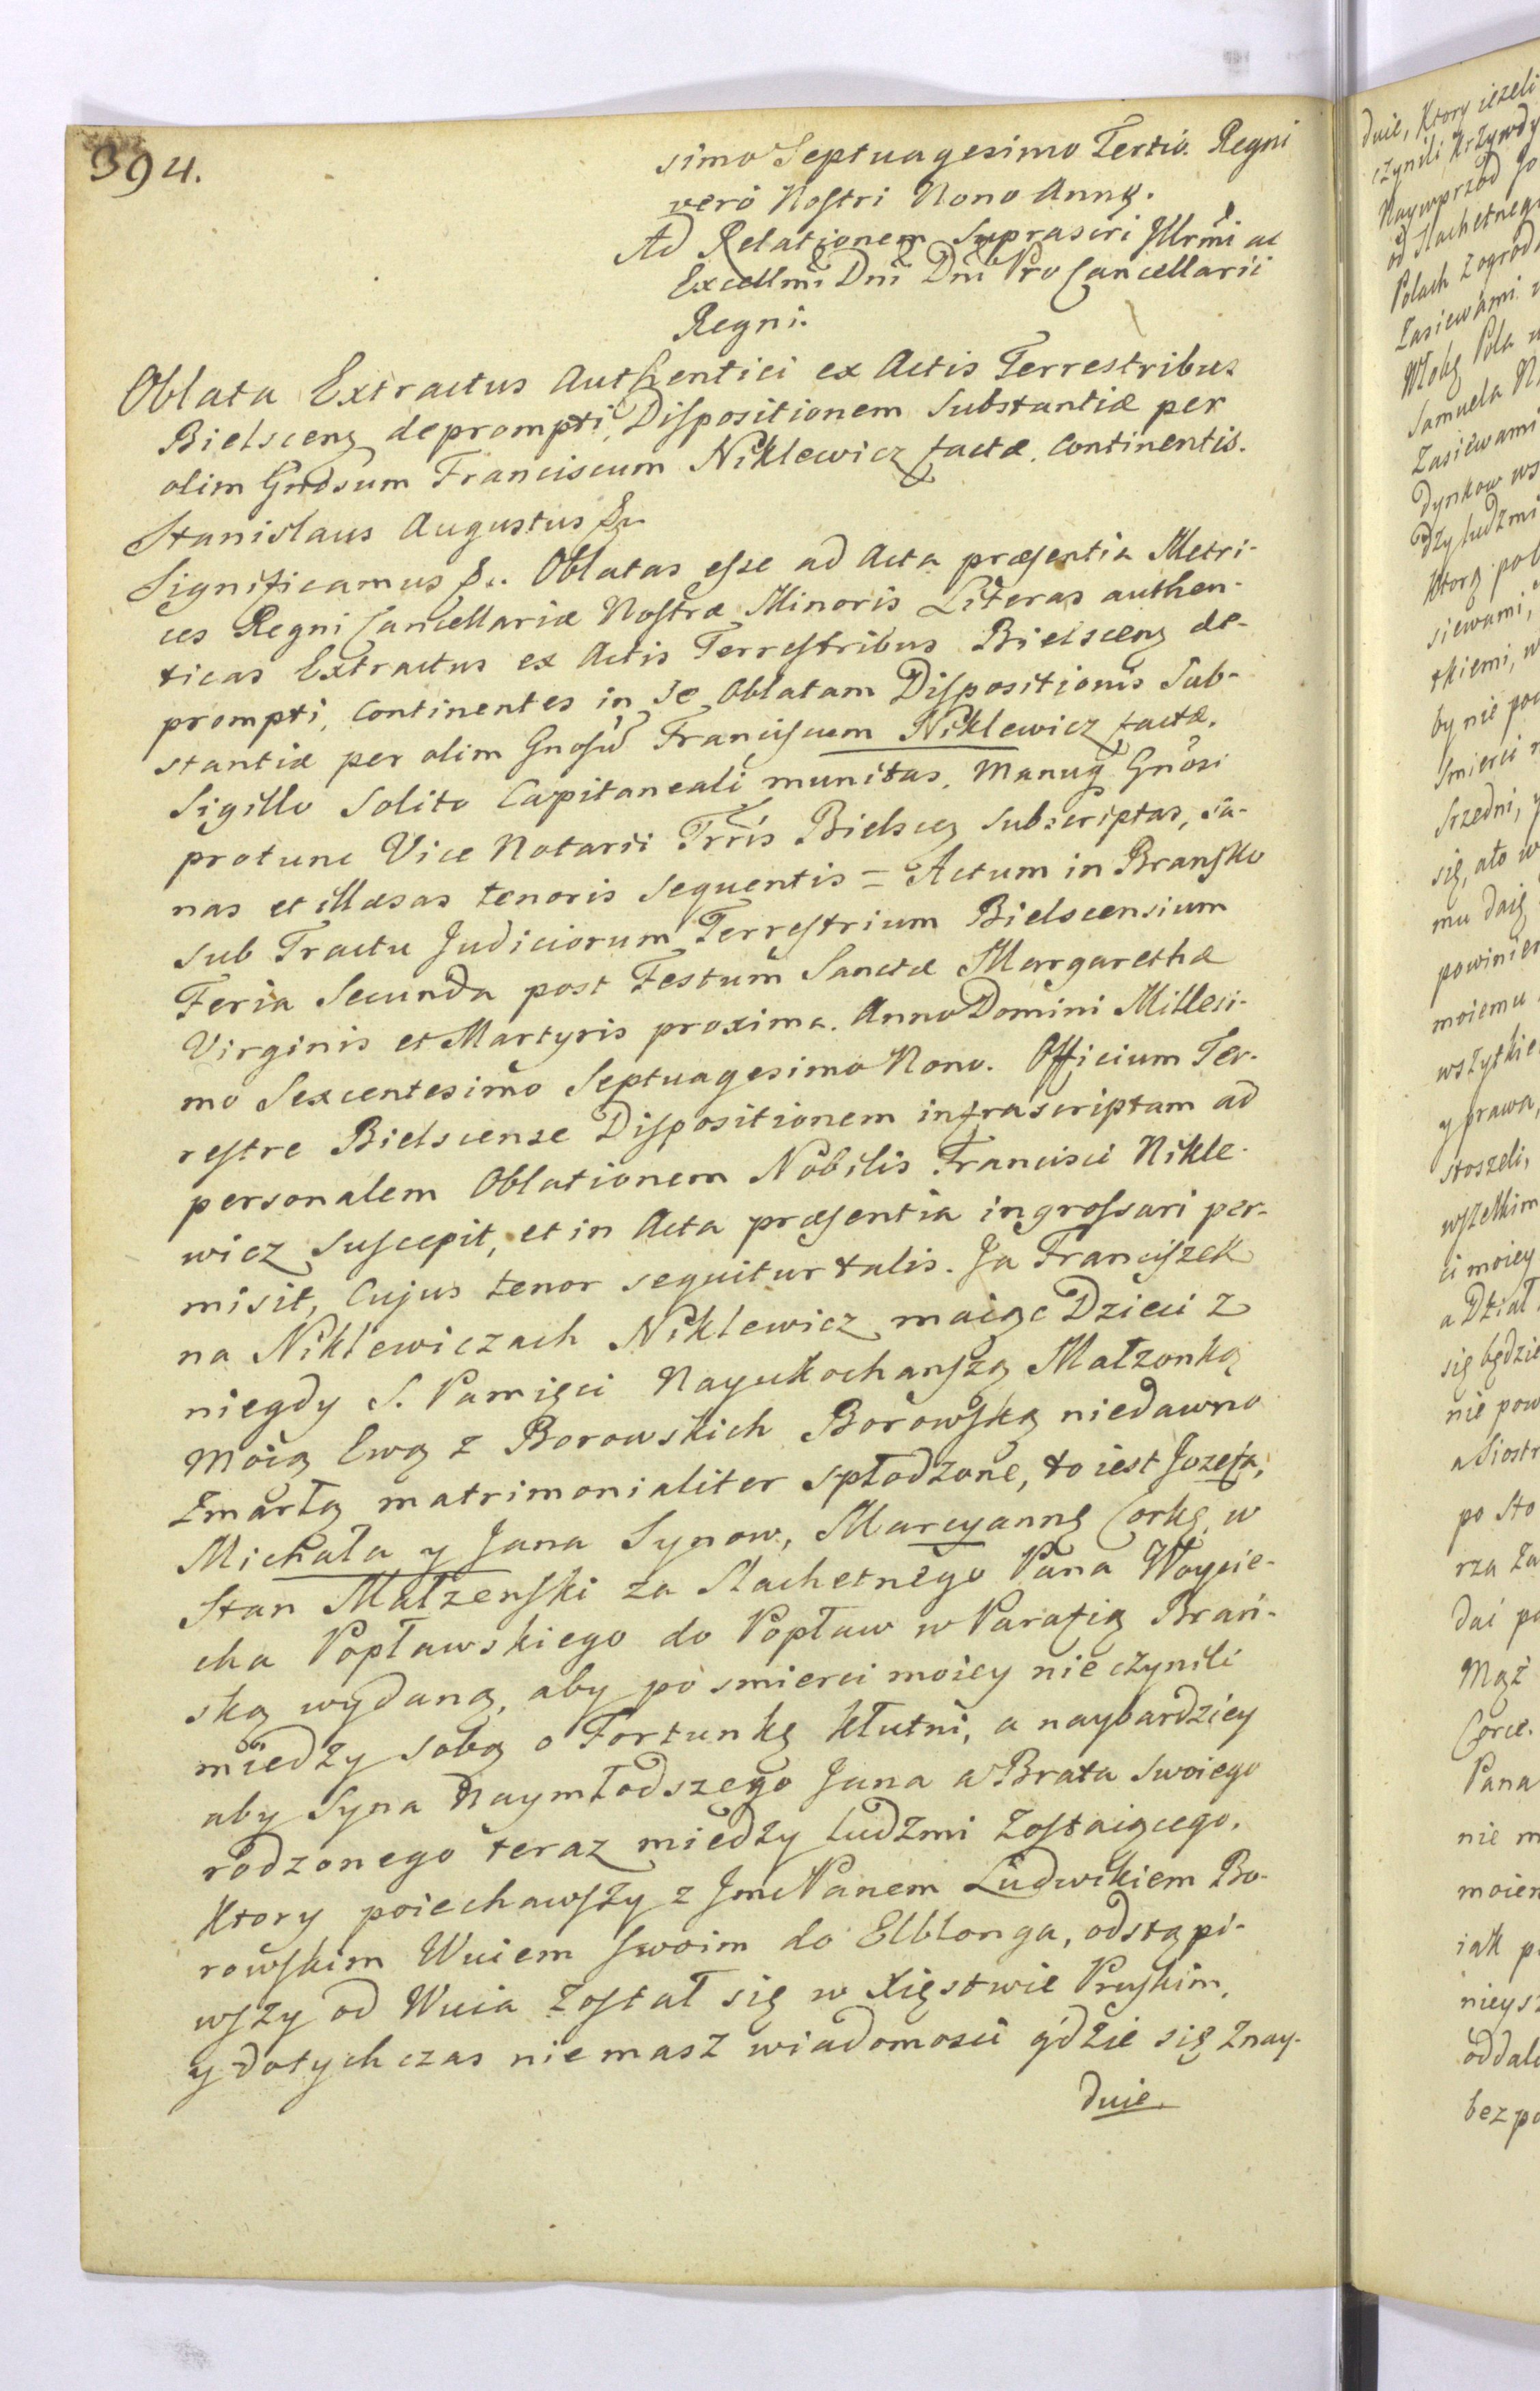 394.
simo Septuagesimo Tertio. Regni
vero Nostri Nono Anno.
Ad Relationem Suprascri Illrmi ac
Excellmi Dni Dni Pro Cancellarii
Regni.
Oblata Extractus Authentici ex Actis Terrestribus
Bielscens deprompti, Dispositionem Substantiæ per
olim Gnosum Franciscum Niklewicz factæ, continentis.
Stanislaus Augustus &c.
Significamus &c. Oblatas esse ad Acta præsentia Metri-
ces Regni Cancellariæ Nostræ Minoris Literas authen-
ticas Extractus ex Actis Terrestribus Bielscens de-
prompti, continentes in se Oblatam Dispositionis Sub-
stantiæ per olim Gnosum Franciscum Niklewicz factæ.
Sigillo Solito Capitaneali munitas, Manuq Gnosi
protunc Vice Notarii Trris Bielscen subscriptas, sa-
nas et illæsas tenoris sequentis = Actum in Bransko
sub Tractu Judiciorum Terrestrium Bielscensium
Feria Secunda post Festum Sanctæ Margarethæ
Virginis et Martyris proxima. Anno Domini Millesi-
mo Sexcentesimo Septuagesimo Nono. Officium Ter-
restre Bielscense Dispositionem infrascriptam ad
personalem Oblationem Nobilis Francisci Nikle-
wicz suscepit, et in Acta præsentia ingrossari per-
misit, Cujus tenor sequitur talis. Ja Franciszek
na Niklewiczach Niklewicz maiąc Dzieci z
niegdy S. Pamięci Nayukochanszą Małzonką
Moią Ewą z Borowskich Borowską niedawno
zmarłą matrimonialiter spłodzone, to iest Jozefa,
Michała y Jana Synow, Marcyannę Corkę w
Stan Małzenski za Slachetnego Pana Woycie-
cha Popławskiego do Popław w Parafię Brań-
ską wydaną, aby po smierci moiey nie czynili
między sobą o Fortunkę kłutni, a naybardziey
aby Syna Naymłodszego Jana a Brata swoiego
rodzonego teraz między ludzmi zostaiącego,
Ktory poiechawszy z Jmć Panem Ludwikiem Bo-
rowskim Wuiem swoim do Elblonga, odstąpi-
wszy od Wuia został się w Xięstwie Pruskim,
y dotychczas nie masz wiadomosci gdzie się znay-
duie.
duie, Ktory iezeli
czynili krzywdy
Naywprzod Jo
od Slachetneg
Polach z ogrod
Zasiewami
Włokę Pola w
Samuela Ni
Zasiewami
dynkow ws
dzy ludzmi
Ktorą pob
siewami,
tkiemi, w
by nie poc
Smierci
Srzedni, y
się, ato w
mu daię
powinien
moiemu
wszytkie
y prawa,
stoszeli,
wszelkim
ci moiey
a Dział
się będzie
nie pow
a Siostr
po Sto
rza za
dać po
Mąż
Corce.
Pana
nie m
moiem
iak p
nieys
oddal
bez po